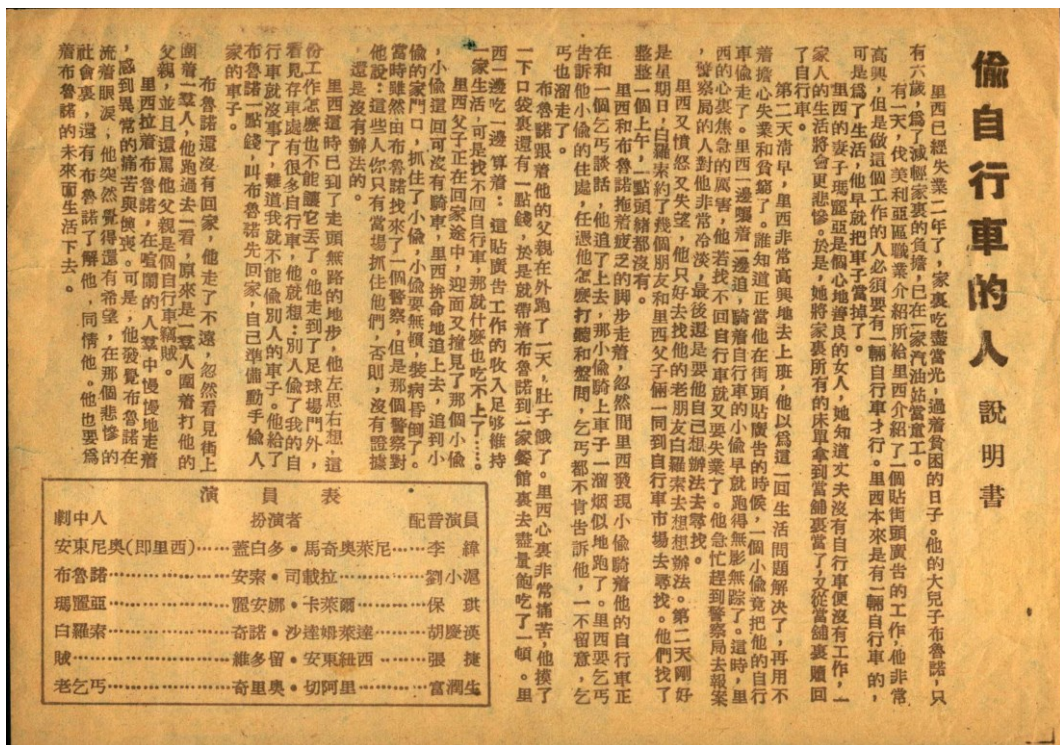 偷自行車的人 說明書
里西已經失業二年了，家裏吃盡當光，過着貧困的日子。他的大兒子布魯諾，只
有六歲，爲了減輕家裏的負擔，已在一家汽油站當童工。
有一天，伐美利亞區職業介紹所給里西介紹了一個貼街頭廣告的工作，他非常
高興，但是做這個工作的人必須要有一輛自行車才行。里西本來是有一輛自行車的，
可是爲了生活，他早就把車子當掉了。
里西的妻子瑪麗亞是個心地善良的女人，她知道丈夫沒有自行車便沒有工作，一
家人的生活將會更悲慘。於是，她將家裏所有的床單拿到當舖裏當了，又從當舖裏贖回
了自行車。
第二天清早，里西非常高興地去上班，他以爲這一回生活問題解決了，再用不
着擔心失業和貧窮了。誰知道正當他在街頭貼廣告的時候，一個小偷竟把他的自行
車偷走了。里西一邊嚷着一邊追，騎着自行車的小偷早就跑得無影無踪了。這時，里
西的心裏焦急的厲害，他若找不回自行車就又要失業了。他急忙趕到警察局去報案
，警察局的人對他非常冷淡，最後還是要他自己想辦法去尋找。
里西又憤怒又失望，他只好去找他的老朋友白羅索去想想辦法。第二天剛好
是星期日，白羅索約了幾個朋友和里西父子倆一同到自行車市場去尋找。他們找了
整整一個上午，一點頭緒都沒有。
里西和布魯諾拖着疲乏的脚步走着，忽然間里西發現小偷騎着他的自行車正
在和一個乞丐談話，他追了上去，那小偷騎上車子一溜烟似地跑了。里西要乞丐
告訴他小偷的住處，任憑他怎麼打聽和盤問，乞丐都不肯告訴他，一不留意，乞
丐也溜走了。
布魯諾跟着他的父親在外跑了一天，肚子餓了。里西心裏非常痛苦，他摸了
一下口袋裏還有一點錢，於是就帶着布魯諾到一家餐館裏去盡量飽吃了一頓。里
西一邊吃一邊算着：這貼廣告工作的收入足够維持
一家生活，可是找不回自行車，那就什麼也吃不上了……。
里西父子正在回家途中，迎面又撞見了那個小偷
，小偷這回可沒有騎車，里西拚命地追上去，追到小
偷的家門口，抓住了小偷，小偷耍無賴，裝病皆倒了。
當時雖然由布魯諾找來了一個警察，但是那個警察對
他說：這些人你只有當場抓住他們，否則，沒有證據
，還是沒有辦法的。
里西這時已到了走頭無路的地步，他左思右想，這
份工作怎麼也不能讓它丟了。他走到了足球場門外，
看見存車處有很多自行車，他就想：別人偷了我的自
行車就沒事了，難道我就不能偷別人的車子。他給了
布魯諾一點錢，叫布魯諾先回家，自己準備動手偷人
家的車子。
布魯諾還沒有回家，他走了不遠，忽然看見街上
圍着一羣人，他跑過去一看，原來是一羣人圍着打他的
父親，並且還罵他父親是個自行車竊賊。
里西拉着布魯諾，在喧鬧的人羣中慢慢地走着
，感到異常的痛苦與頹喪。可是，他發覺布魯諾在
流着眼淚，他突然覺得還有希望，在那個悲慘的
社會裏，還有布魯諾了解他，同情他。他也要爲
着布魯諾的未來而生活下去。
演員表
劇中人 扮演者 配音演員
安東尼奧(即里西)……蓋白多·馬奇奧萊尼……李緯
布魯諾……安索·司載拉……劉小滬
瑪麗亞……麗安娜·卡萊爾……保琪
白羅索……奇諾·沙達姆萊達……胡慶漢
賊……維多留·安東紐西……張捷
老乞丐……奇里奧·切阿里……富潤生